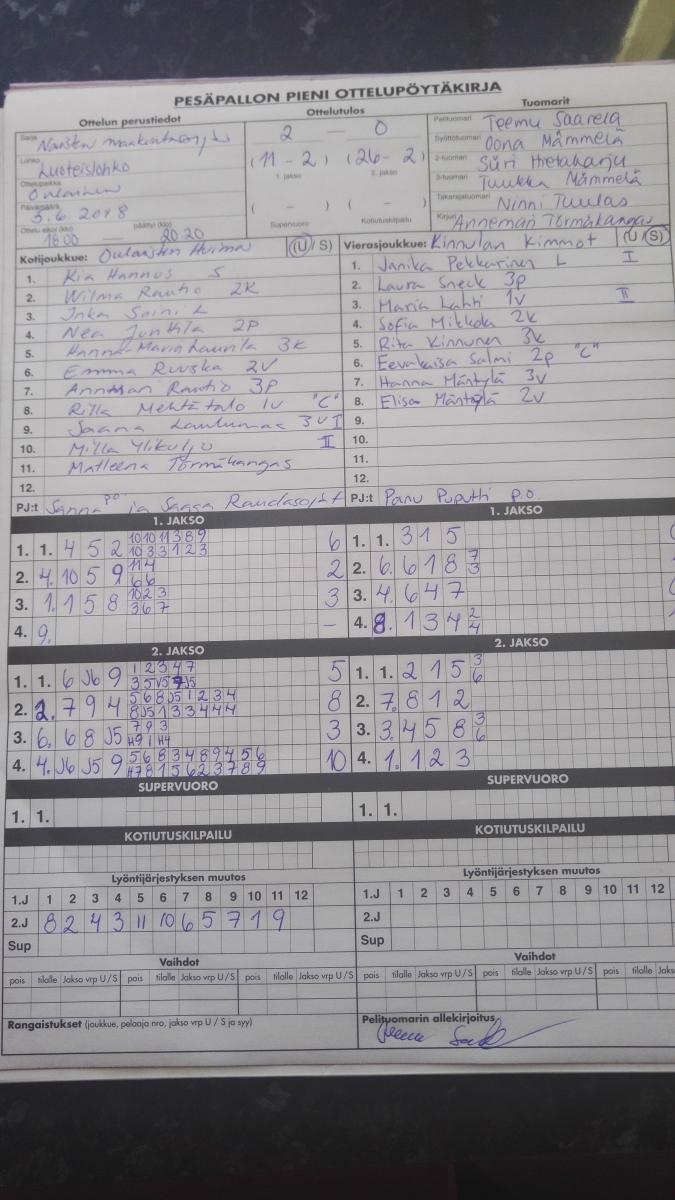 PESÄPALLON PIENI OTTELUPÖYTÄKIRJA
Ottelun perustiedot
Ottelutulos
Tuomarit
Sarja Naisten maakuntasarja
Lohko Luoteislohko
Ottelupaikka Oulainen
Päivämäärä 3.6.2018
Ottelu alkoi (klo) 18.00 — päättyi (klo) 20.20
2 — 0
(11 - 2) (26 - 2)
1. jakso 2. jakso
( - ) ( - )
Supervuoro Kotiutuskilpailu
Pelituomari Teemu Saarela
Syöttötuomari Oona Mämmelä
2-tuomari Suvi Hietaharju
3-tuomari Tuukka Mämmelä
Takarajatuomari Ninni Tuulas
Kirjuri Annemari Törmäkangas
Kotijoukkue: Oulaisten Huima (U / S)
1. Kia Hannus S
2. Wilma Rautio 2K
3. Inka Soini L
4. Nea Junttila 2P
5. Hanna-Maria Laurila 3K
6. Emma Ruuska 2V
7. Rautio 3P
8. Riila Mehtätalo 1V "C"
9. Saana 3V I
10. Milla Ylikulju II
11. Matleena Törmäkangas
12.
PJ:t Sanna PJ ja Saara
Vierasjoukkue: Kinnulan Kimmot (U / S)
1. Janika Pekkarinen L I
2. Laura Sneck 3p
3. Maria Lahti 1v II
4. Sofia Mikkola 2k
5. Rita Kinnunen 3k
6. Eevakaisa Salmi 2p "C"
7. Hanna Mäntylä 3v
8. Elisa Mäntylä 2v
9.
10.
11.
12.
PJ:t Panu Puputti p.o.
1. JAKSO
1. 1. 4 5 2 10 10 11 3 8 9 6
10 3 3 1 2 3
2. 4. 10 5 9 11 4 2
6 6
3. 1. 1 5 8 10 2 3 3
3 6 7
4. 9. –
1. JAKSO
1. 1. 3 1 5
2. 6. 6 1 8 7
3
3. 4. 6 4 7
4. 8. 1 3 4 2
4
2. JAKSO
1. 1. 6 J6 9 1 2 3 4 7 5
3 5 J5 9 J5
2. 2. 7 9 4 5 6 8 J5 1 2 3 4 8
8 J5 1 3 3 4 4 4
3. 6. 6 8 J5 7 9 3 3
H9 1 H4
4. 4. J6 J5 9 5 6 8 3 4 8 9 4 5 6 10
H7 8 1 5 6 2 3 7 8 9
2. JAKSO
1. 1. 2 1 5 3
6
2. 7. 8 1 2
3. 3. 4 5 8 3
6
4. 1. 1 2 3
SUPERVUORO
1. 1.
SUPERVUORO
1. 1.
KOTIUTUSKILPAILU
KOTIUTUSKILPAILU
Lyöntijärjestyksen muutos
1.J 1 2 3 4 5 6 7 8 9 10 11 12
2.J 8 2 4 3 11 10 6 5 7 1 9
Sup
Lyöntijärjestyksen muutos
1.J 1 2 3 4 5 6 7 8 9 10 11 12
2.J
Sup
Vaihdot
pois tilalle Jakso vrp U / S pois tilalle Jakso vrp U / S pois tilalle Jakso vrp U / S
Vaihdot
pois tilalle Jakso vrp U / S pois tilalle Jakso vrp U / S pois tilalle Jakso
Rangaistukset (joukkue, pelaaja nro, jakso vrp U / S ja syy)
Pelituomarin allekirjoitus